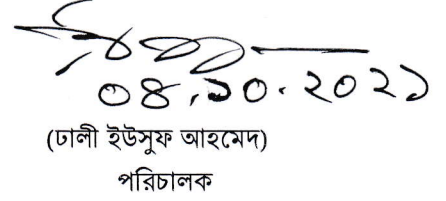 ০৪.১০.২০২১
(ঢালী ইউসুফ আহমেদ)
পরিচালক